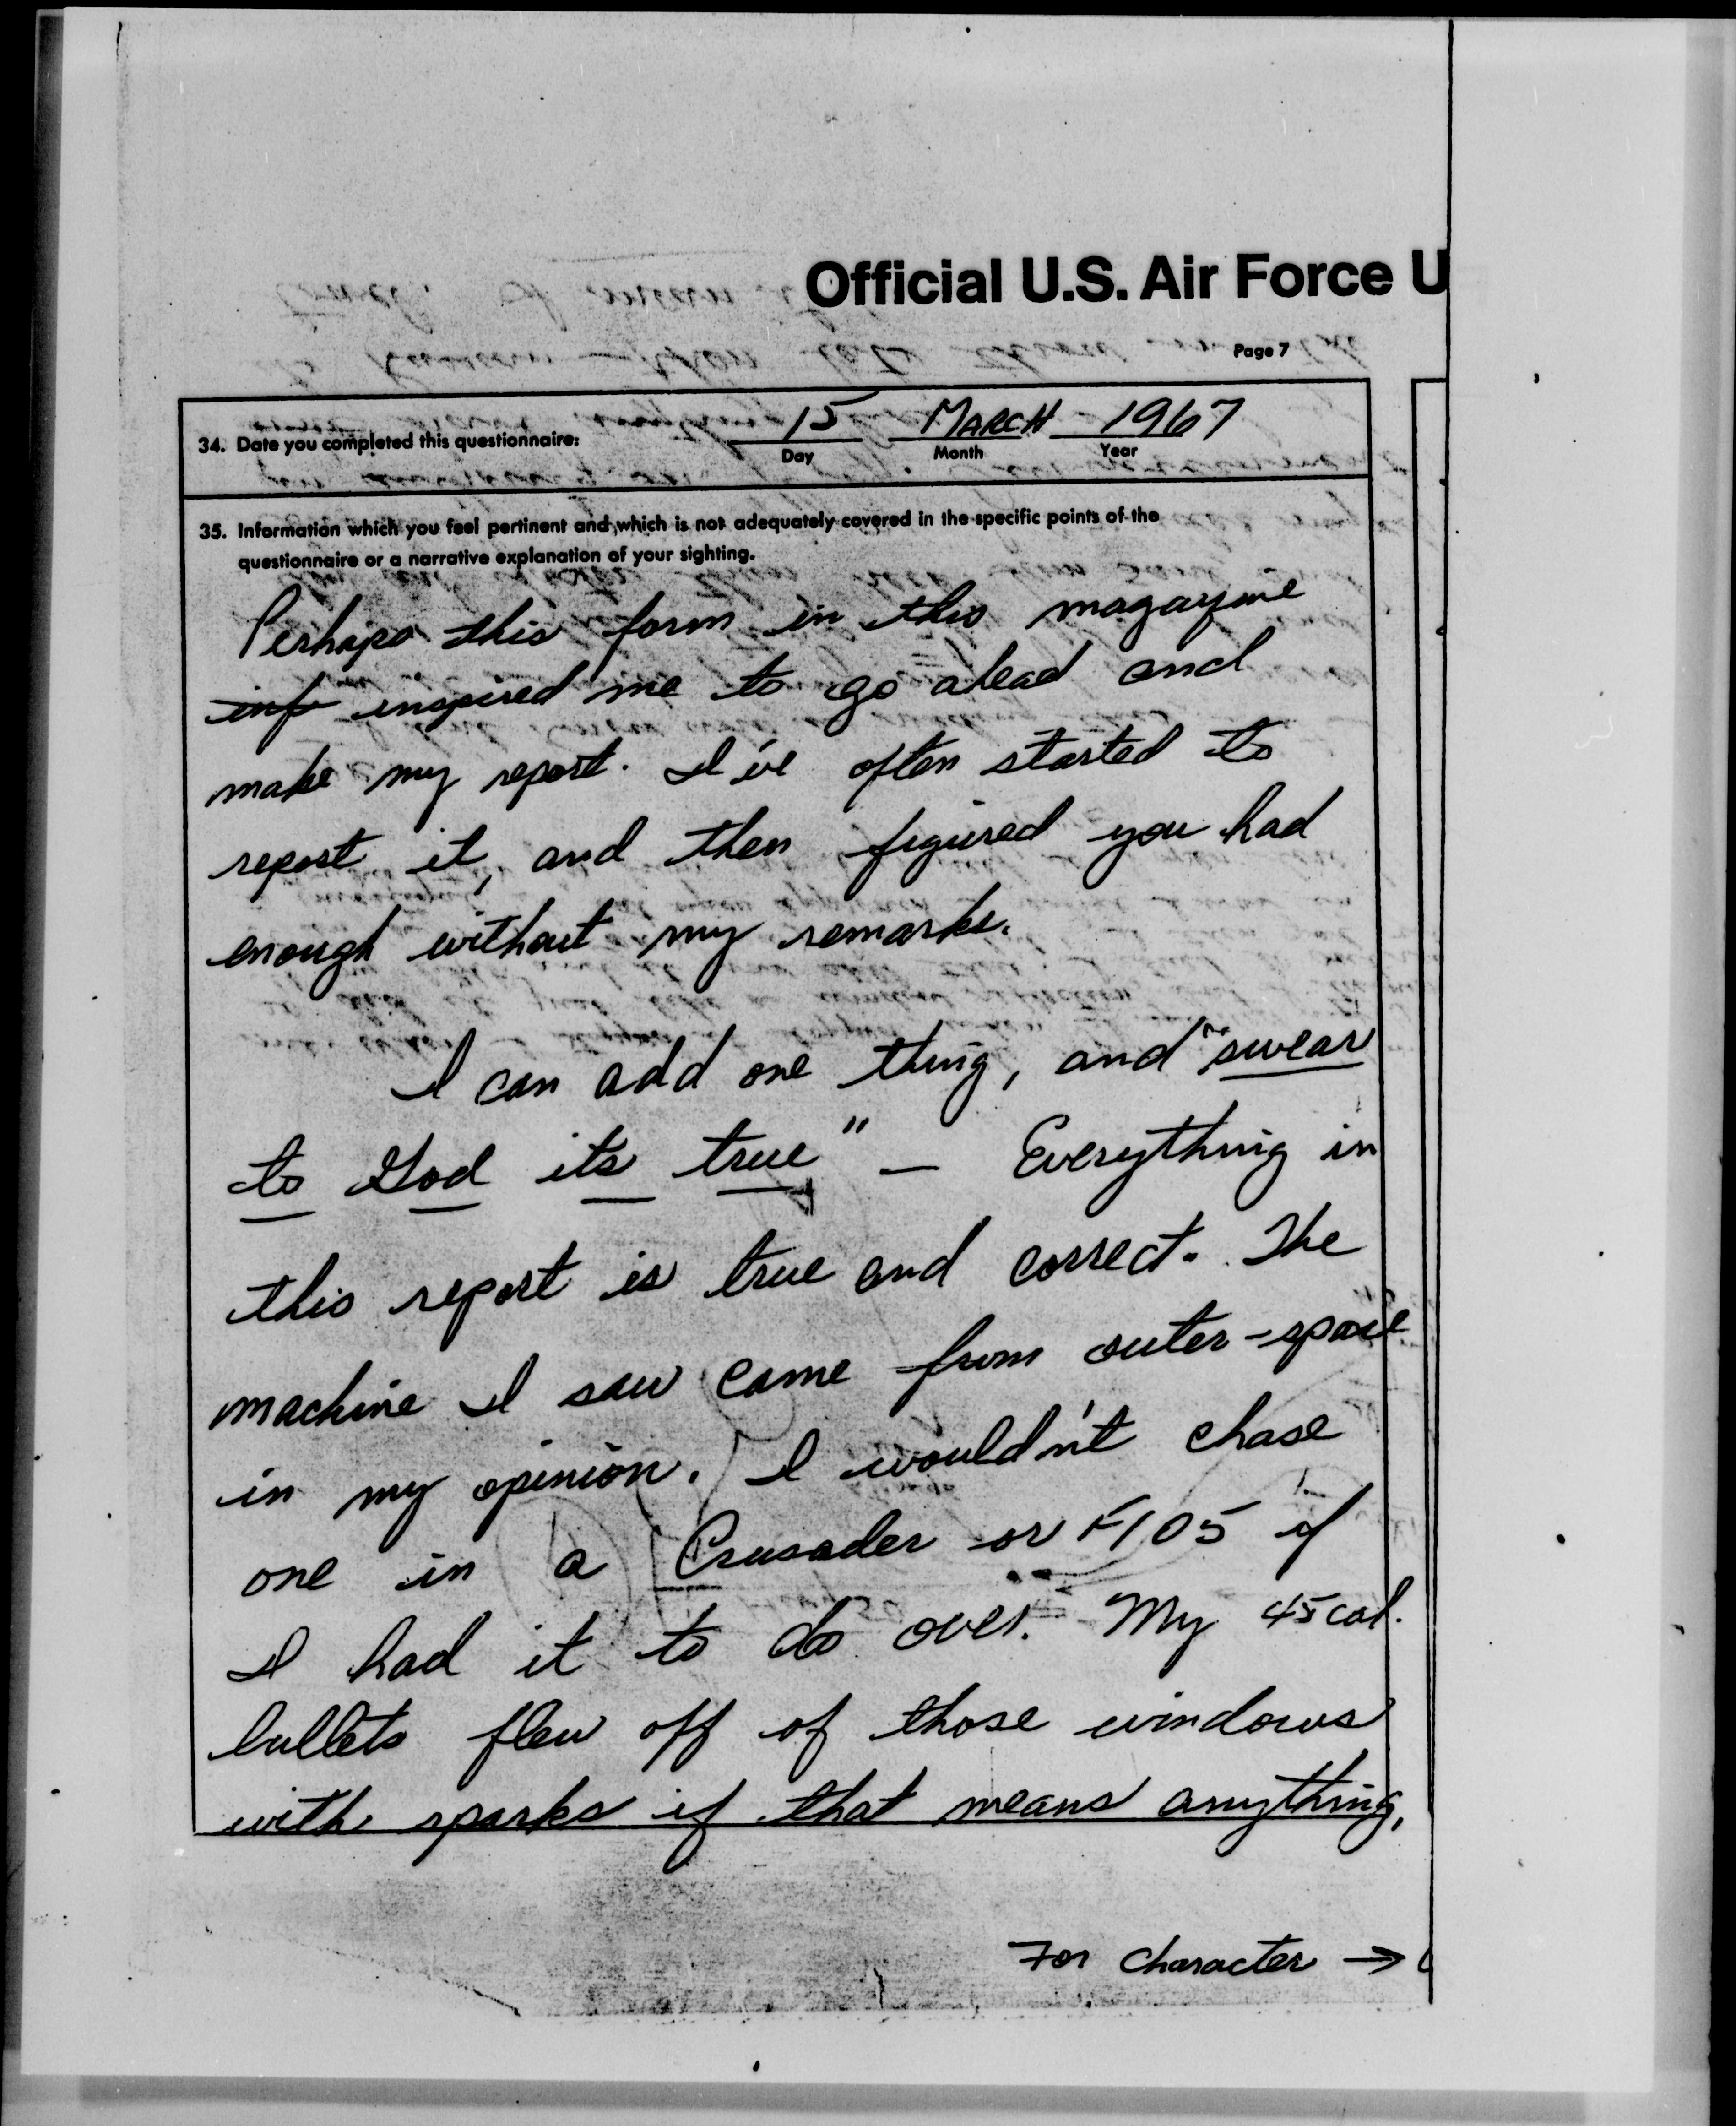 Official U.S. Air Force U
Page 7
34. Date you completed this questionnaire: 15 MARCH 1967
Day Month Year
35. Information which you feel pertinent and which is not adequately covered in the specific points of the
questionnaire or a narrative explanation of your sighting.
Perhaps this form in this magazine
inf inspired me to go ahead and
make my report. I've often started to
report it, and then figured you had
enough without my remarks.
I can add one thing, and "swear
to God its true" — Everything in
this report is true and correct. The
machine I saw came from outer-space
in my opinion. I wouldn't chase
one in a Crusader or F105 if
I had it to do over. My 45 cal.
bullets flew off of those windows
with sparks if that means anything,
For Character →